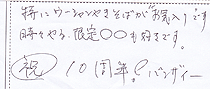 特にウーシャンやきそばがお気入りです
時々やる、限定〇〇も好きです。
祝 10周年!バンザイー